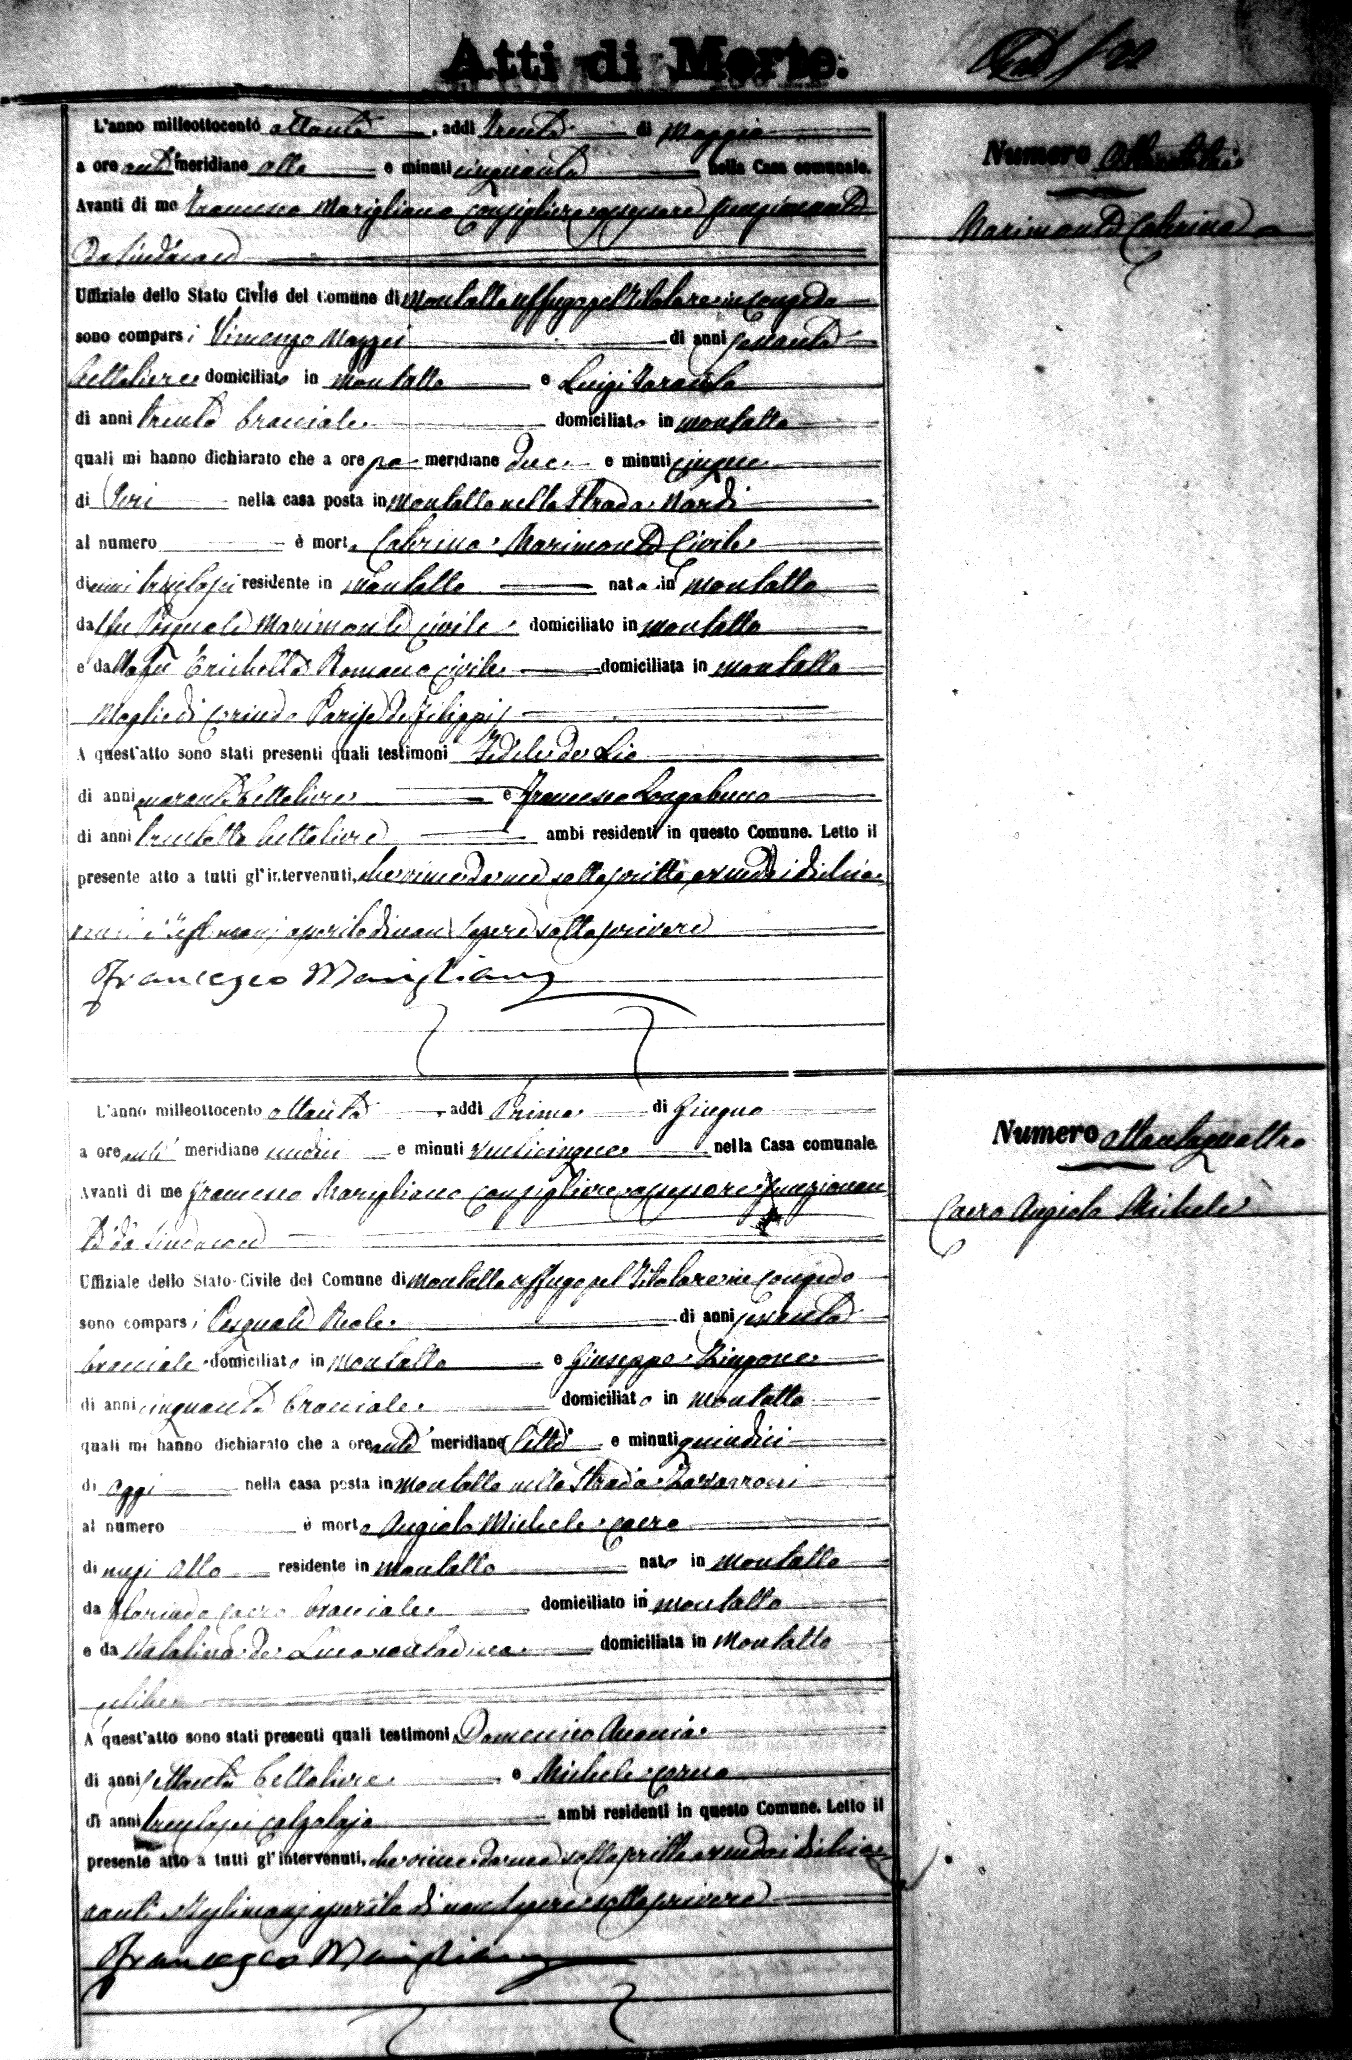 Atti di Morte.
L'anno milleottocento ottanta, addi trenta di Maggio
a ore anti meridiane otto e minuti cinquanta nella Casa comunale.
Avanti di me Francesco Marigliano Consigliere assessore funzionante
Da Sindaco
Uffiziale dello Stato Civile del Comune di Montalto Uffugo pel titolare in congedo
sono comparsi Vincenzo Mazzei di anni sessanta
bettoliere domiciliato in Montalto e Luigi
di anni trenta bracciale domiciliato in Montalto
quali mi hanno dichiarato che a ore po meridiane due e minuti cinque
di Ieri nella casa posta in Montalto nella Strada Nardi
al numero è morta Caterina Marimonte Civile
di anni trentasei residente in Montalto nata in Montalto
dal fu Pasquale Marimonte civile domiciliato in Montalto
e dalla fu Errichetta Romano civile domiciliata in Montalto
Moglie di Corindo Parise de Filippis
A quest'atto sono stati presenti quali testimoni Fedele de Lio
di anni quaranta bettoliere e Francesco Longobucco
di anni trentotto bettoliere ambi residenti in questo Comune. Letto il
presente atto a tutti gl'intervenuti, che viene da me sottoscritto avendo i dichia
ranti i testimoni asserito di non sapere sottoscrivere
Francesco Marigliano
Numero Ottantatre
Marimonte Caterina
L'anno milleottocento ottanta, addi Primo di Giugno
a ore anti meridiane undici e minuti venticinque nella Casa comunale.
Avanti di me Francesco Marigliano Consigliere assessore funzionan
te da Sindaco
Uffiziale dello Stato Civile del Comune di Montalto Uffugo pel titolare in congedo
sono comparsi Pasquale Reale di anni sessanta
bracciale domiciliato in Montalto e Giuseppe Zingone
di anni cinquanta bracciale domiciliato in Montalto
quali mi hanno dichiarato che a ore anti meridiane sette e minuti quindici
di oggi nella casa posta in Montalto nella Strada Zavarroni
al numero è morto Angiolo Michele Caero
di mesi otto residente in Montalto nato in Montalto
da Florindo Caero bracciale domiciliato in Montalto
e da Natalina de Luca contadina domiciliata in Montalto
celibe
A quest'atto sono stati presenti quali testimoni Domenico Anania
di anni settanta bettoliere e Michele
di anni trentasei calzolajo ambi residenti in questo Comune. Letto il
presente atto a tutti gl'intervenuti, che viene da me sottoscritto avendo i dichia
ranti e testimoni asserito di non sapere sottoscrivere
Francesco Marigliano
Numero ottantaquattro
Caero Angiolo Michele